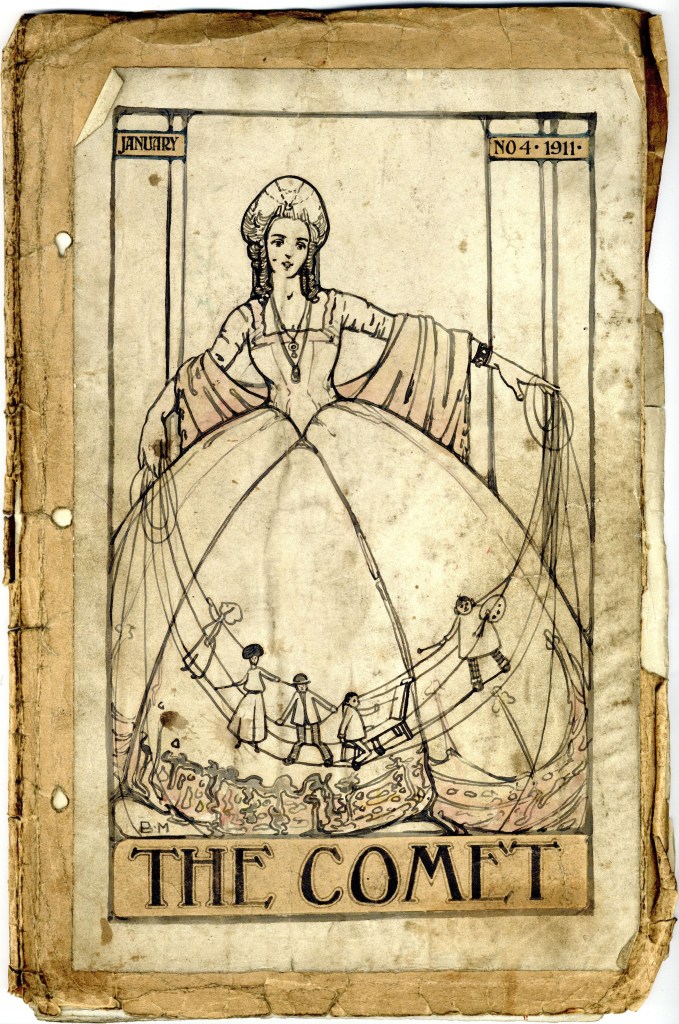 JANUARY
NO 4 · 1911 ·
B·M
THE COMET